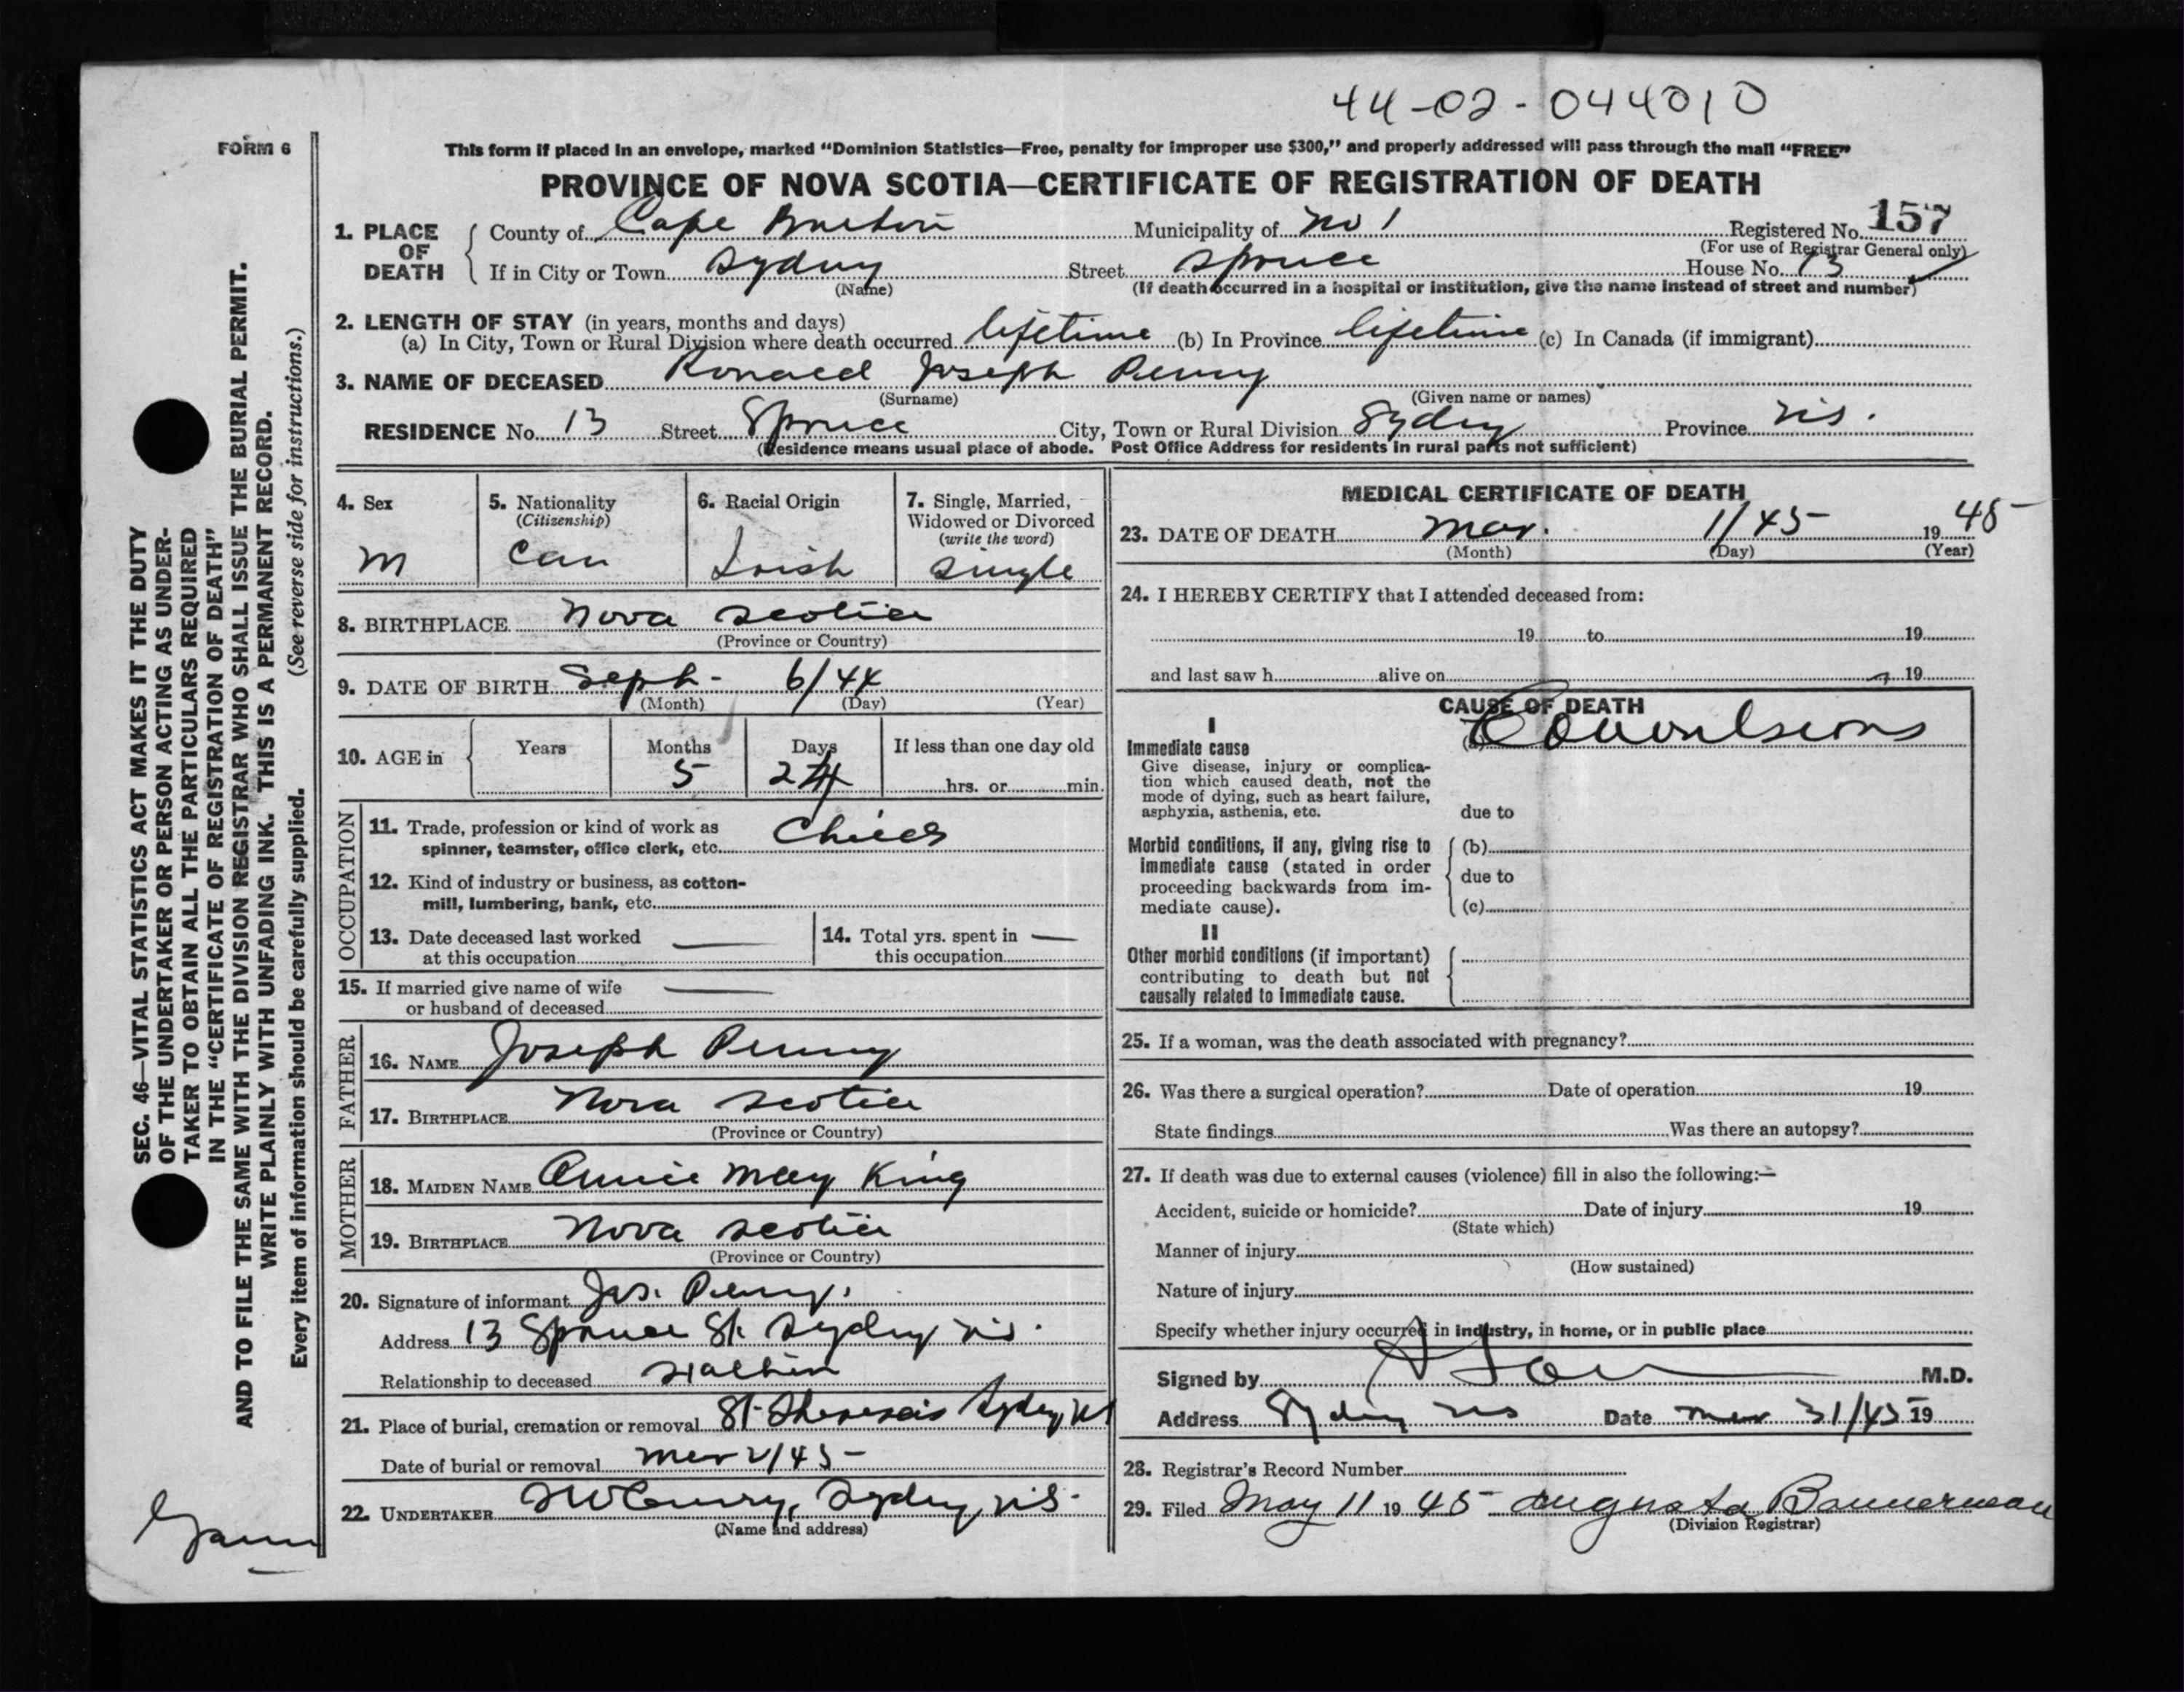 44-02-044010
FORM 6
This form if placed in an envelope, marked "Dominion Statistics—Free, penalty for improper use $300," and properly addressed will pass through the mail "FREE"
PROVINCE OF NOVA SCOTIA—CERTIFICATE OF REGISTRATION OF DEATH
1. PLACE OF DEATH County of Cape Breton Municipality of No 1 Registered No. 157
(For use of Registrar General only)
If in City or Town Sydney Street Spruce House No. 13
(Name) (If death occurred in a hospital or institution, give the name instead of street and number)
2. LENGTH OF STAY (in years, months and days)
(a) In City, Town or Rural Division where death occurred lifetime (b) In Province lifetime (c) In Canada (if immigrant)
3. NAME OF DECEASED Ronald Joseph Penny
(Surname) (Given name or names)
RESIDENCE No. 13 Street Spruce City, Town or Rural Division Sydney Province N.S.
(Residence means usual place of abode. Post Office Address for residents in rural parts not sufficient)
4. Sex 5. Nationality (Citizenship) 6. Racial Origin 7. Single, Married, Widowed or Divorced (write the word)
M Can Irish Single
8. BIRTHPLACE Nova Scotia
(Province or Country)
9. DATE OF BIRTH Sept - 6/44
(Month) (Day) (Year)
10. AGE in Years Months Days If less than one day old
5 24 hrs. or min.
OCCUPATION
11. Trade, profession or kind of work as
spinner, teamster, office clerk, etc. Child
12. Kind of industry or business, as cotton-
mill, lumbering, bank, etc.
13. Date deceased last worked
at this occupation —
14. Total yrs. spent in
this occupation —
15. If married give name of wife
or husband of deceased —
FATHER
16. NAME Joseph Penny
17. BIRTHPLACE Nova Scotia
(Province or Country)
MOTHER
18. MAIDEN NAME Annie May King
19. BIRTHPLACE Nova Scotia
(Province or Country)
20. Signature of informant Jos. Penny.
Address 13 Spruce St. Sydney N.S.
Relationship to deceased Father
21. Place of burial, cremation or removal St. Theresa's Sydney NS
Date of burial or removal Mar 2/45
22. UNDERTAKER Sydney, N.S.
(Name and address)
MEDICAL CERTIFICATE OF DEATH
23. DATE OF DEATH Mar. 1/45 19 45
(Month) (Day) (Year)
24. I HEREBY CERTIFY that I attended deceased from:
19 to 19
and last saw h alive on 19
CAUSE OF DEATH
I
Immediate cause (a) Convulsions
Give disease, injury or complica-
tion which caused death, not the
mode of dying, such as heart failure,
asphyxia, asthenia, etc. due to
Morbid conditions, if any, giving rise to (b)
immediate cause (stated in order
proceeding backwards from im- due to
mediate cause). (c)
II
Other morbid conditions (if important)
contributing to death but not
causally related to immediate cause.
25. If a woman, was the death associated with pregnancy?
26. Was there a surgical operation? Date of operation 19
State findings Was there an autopsy?
27. If death was due to external causes (violence) fill in also the following:—
Accident, suicide or homicide? Date of injury 19
(State which)
Manner of injury
(How sustained)
Nature of injury
Specify whether injury occurred in industry, in home, or in public place
Signed by M.D.
Address Sydney NS Date Mar 31/45 19
28. Registrar's Record Number
29. Filed May 11 19 45 Augusta Bannerman
(Division Registrar)
SEC. 46—VITAL STATISTICS ACT MAKES IT THE DUTY
OF THE UNDERTAKER OR PERSON ACTING AS UNDER-
TAKER TO OBTAIN ALL THE PARTICULARS REQUIRED
IN THE "CERTIFICATE OF REGISTRATION OF DEATH"
AND TO FILE THE SAME WITH THE DIVISION REGISTRAR WHO SHALL ISSUE THE BURIAL PERMIT.
WRITE PLAINLY WITH UNFADING INK. THIS IS A PERMANENT RECORD.
Every item of information should be carefully supplied. (See reverse side for instructions.)